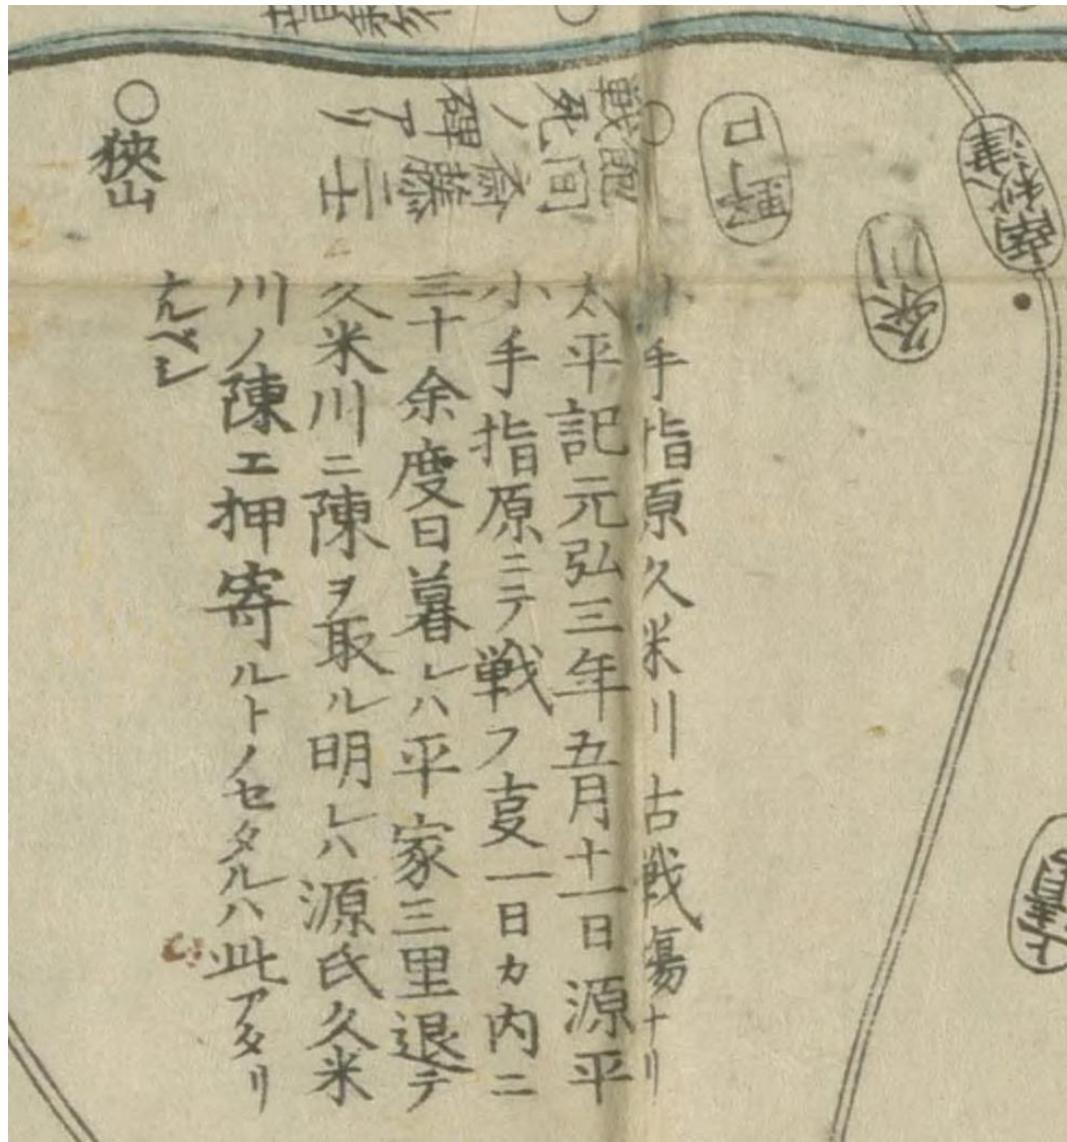 小手指原久米川古戦場ナリ
太平記元弘三年五月十一日源平
小手指原ニテ戦フ叓一日カ内ニ
三十余度日暮レハ平家三里退テ
久米川ニ陳ヲ取ル明レハ源氏久米
川ノ陳エ押寄ルトノセタルハ此アタリ
ナルベシ
○狹山
野口
南秋津
久米川
飽間斎藤三士
戦死ノ碑アリ